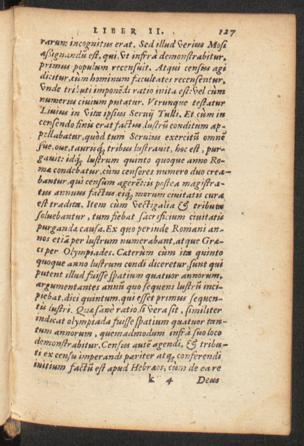 LIBER II. 127
rarum incognitus erat. Sed illud verius Mosi
assignandū est, qui, ut infrà demonstrabitur,
primus populum recensuit. Atqui census agi
dicitur, cùm hominum facultates recensentur,
Vnde tributi imponēdi ratio inita est: vel cùm
numerus ciuium putatur. Vtrunque testatur
Liuius in Vita ipsius Seruij Tulli. Et cùm in
censendo finis erat factus, lustrū conditum ap-
pellabatur, quòd tum Seruius exercitū omnē
sue, oue, tauriq́, tribus lustrauit, hoc est, pur-
gauit: idq́, lustrum quinto quoque anno Ro-
mæ condebatur, cùm censores numero duo crea-
bantur, qui censum agerēt: is postea magistra-
tus annuus factus eiq́, morum ciuitatis cura
est tradita. Item cùm Vectigalia & tributa
soluebantur, tum fiebat sacrificium ciuitatis
purgandæ causa. Ex quo perinde Romani an-
nos etiā per lustrum numerabant, atque Græ-
ci per Olympiades. Cæterùm cùm ita quinto
quoque anno lustrum condi diceretur, sunt qui
putent illud fuisse spatium quatuor annorum,
argumentantes annū quo sequens lustrū inci-
piebat, dici quintum, qui esset primus sequen-
tis lustri. Quæ sanè ratio si vera sit, similiter
indicat olympiada fuisse spatium quatuor tan-
tum annorum, quemadmodum infrà suo loco
demonstrabitur. Census autē agendi, & tribu-
ti ex censu imperandi pariter atq́, conferendi
initium factū est apud Hebræos, cùm de ea re
k 4 Deus